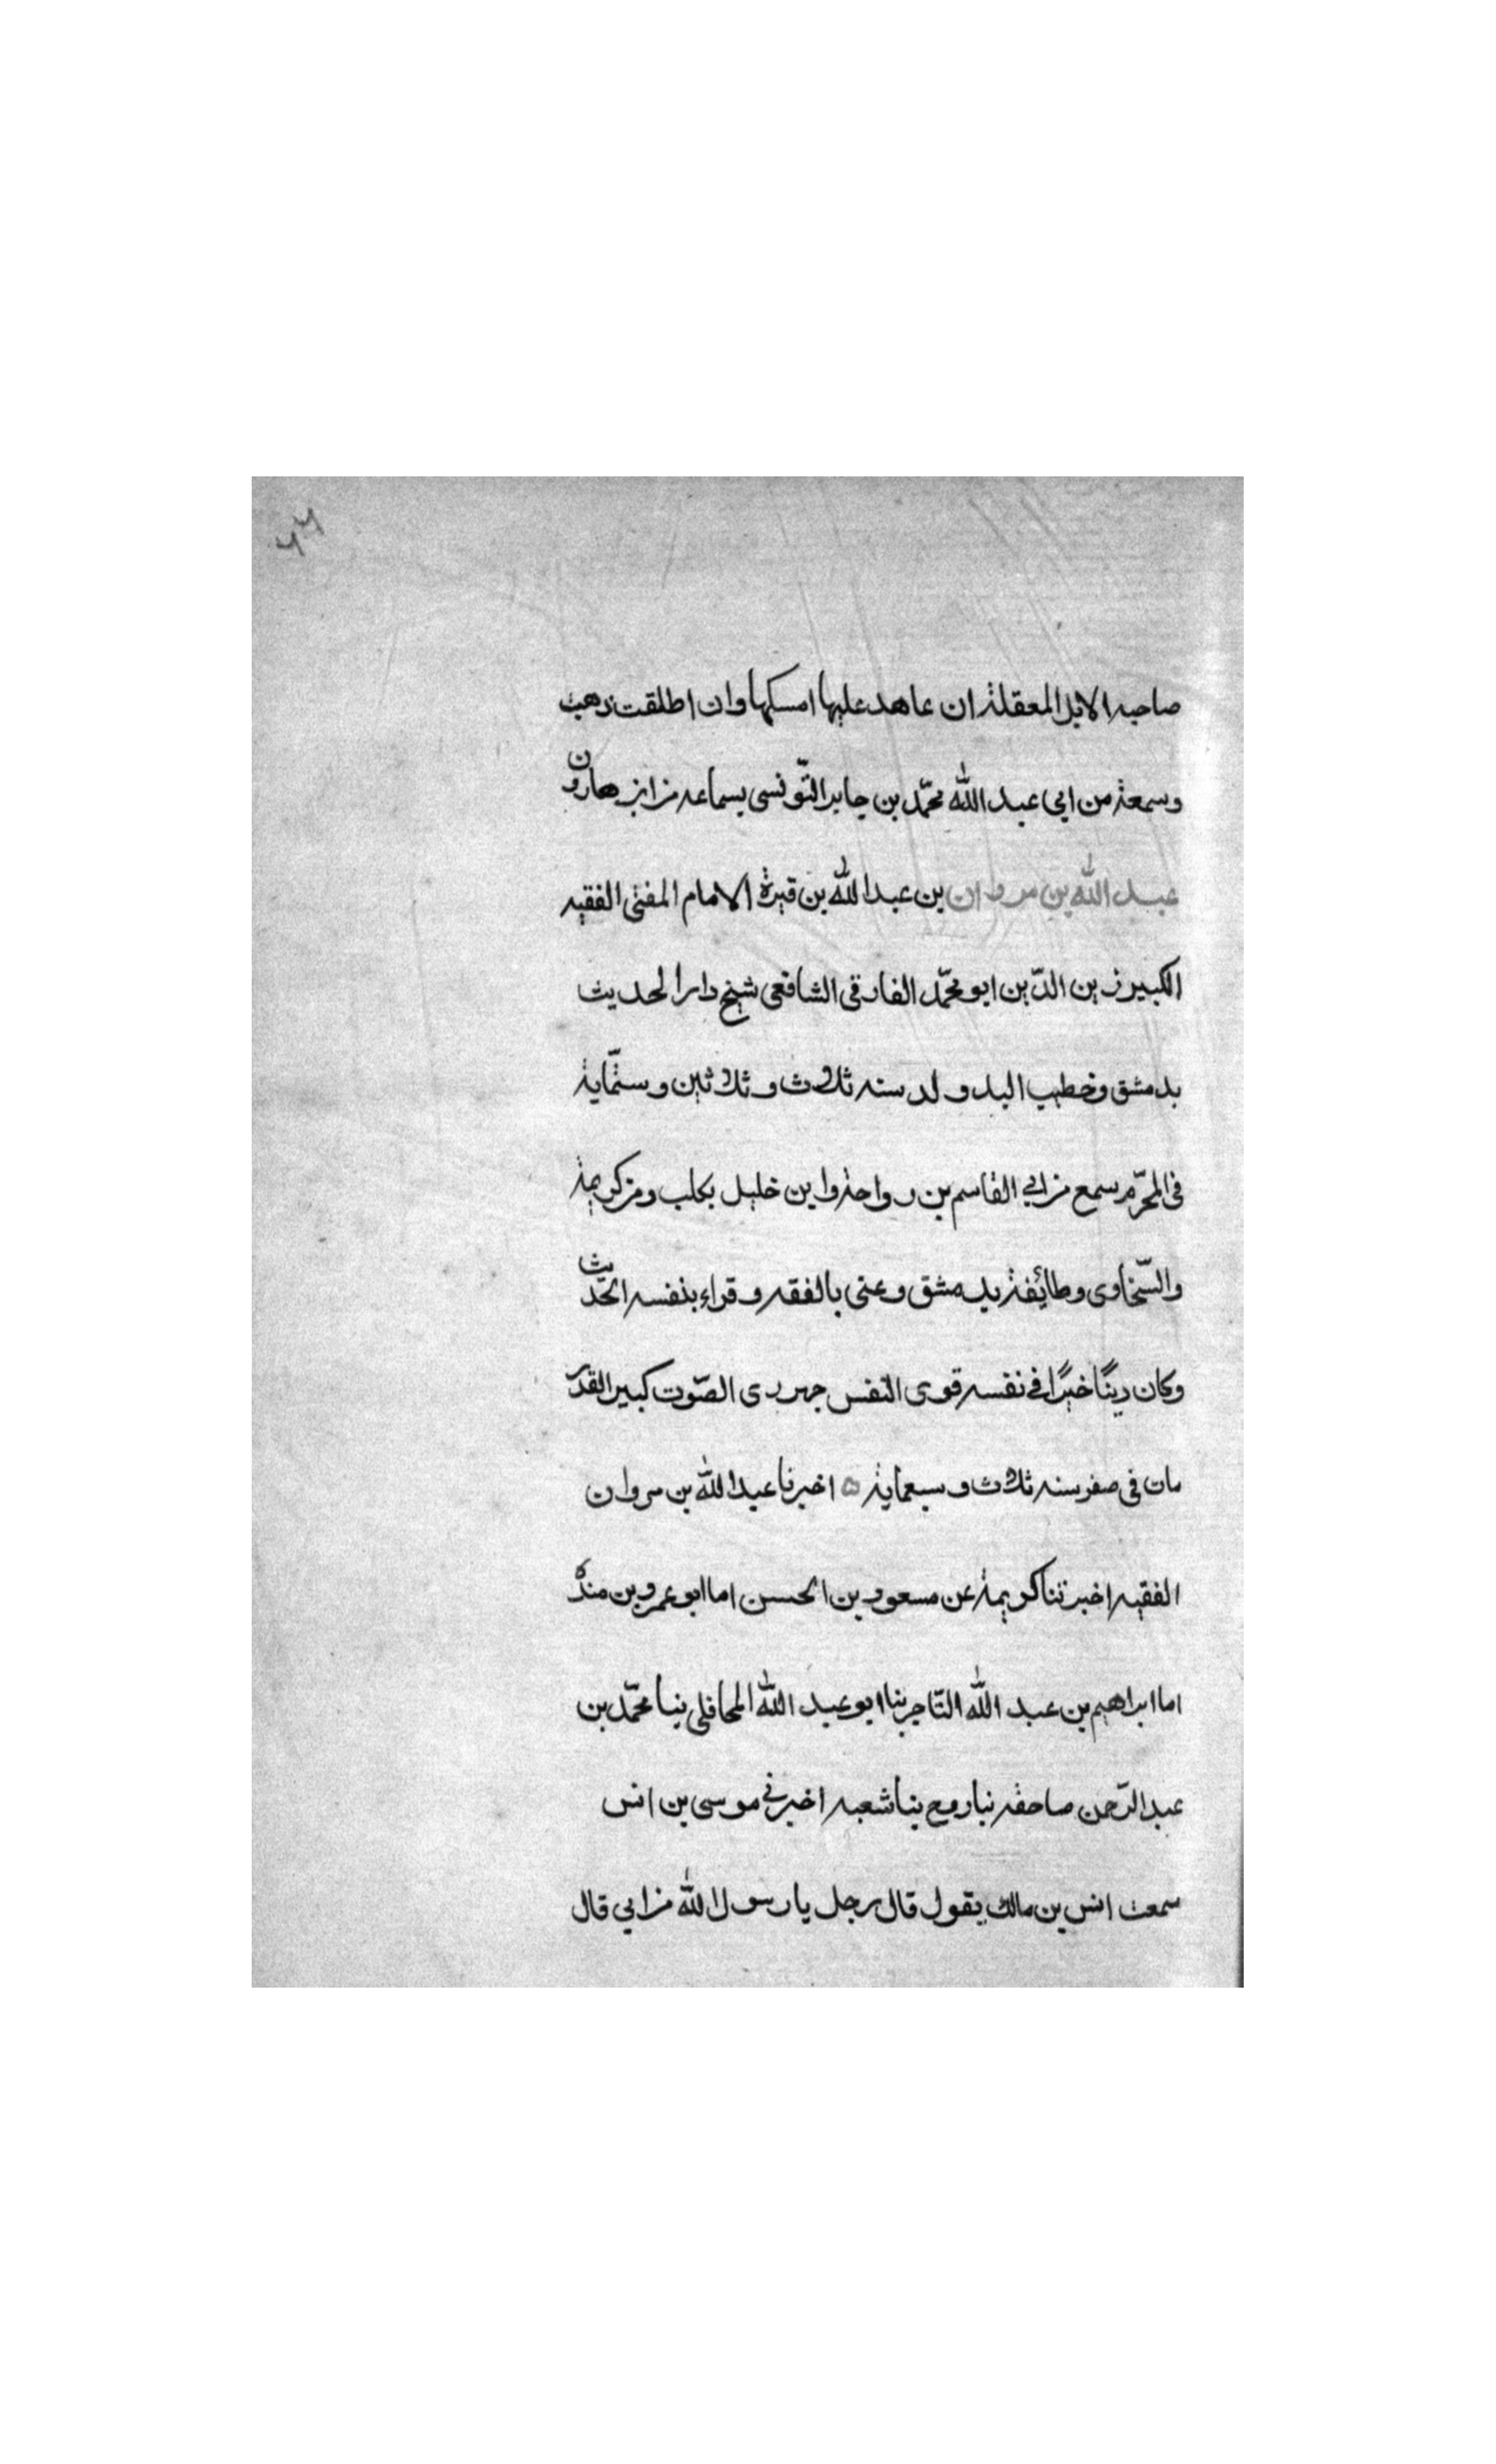 ٢٦
صاحبه الابل المعقلة ان عاهد عليها امسكها وان اطلقت ذهبت
وسمعته من ابي عبد الله محمّد بن جابر التّونسى بسماعه من ابن هارون
عبد الله بن مروان بن عبد الله بن قيرة الامام المفتى الفقيه
الكبير زين الدّين ابو محمّد الفارقى الشافعى شيخ دار الحديث
بدمشق وخطيب البلد ولد سنه ثلاث وثلاثين وستّماية
فى المحرّم سمع من ابي القاسم بن رواحة وابن خليل بحلب ومن كريمة
والسّخاوى وطائفة بدمشق وعنى بالفقه وقراء بنفسه الحديث
وكان ديّنًا خيرًا في نفسه قوى النّفس جهرى الصّوت كبير القدر
مات فى صفر سنه ثلاث وسبعماية ه اخبرنا عبد الله بن مروان
الفقيه اخبرتنا كريمة عن مسعود بن الحسن اما ابو عمرو بن منده
اما ابراهيم بن عبد الله التّاجر بنا ابو عبد الله المحافلى بنا محمّد بن
عبد الرّحمن صاحفه نبا روح بنا شعبه اخبرنى موسى بن انس
سمعت انس بن مالك يقول قال رجل يا رسول الله من ابي قال